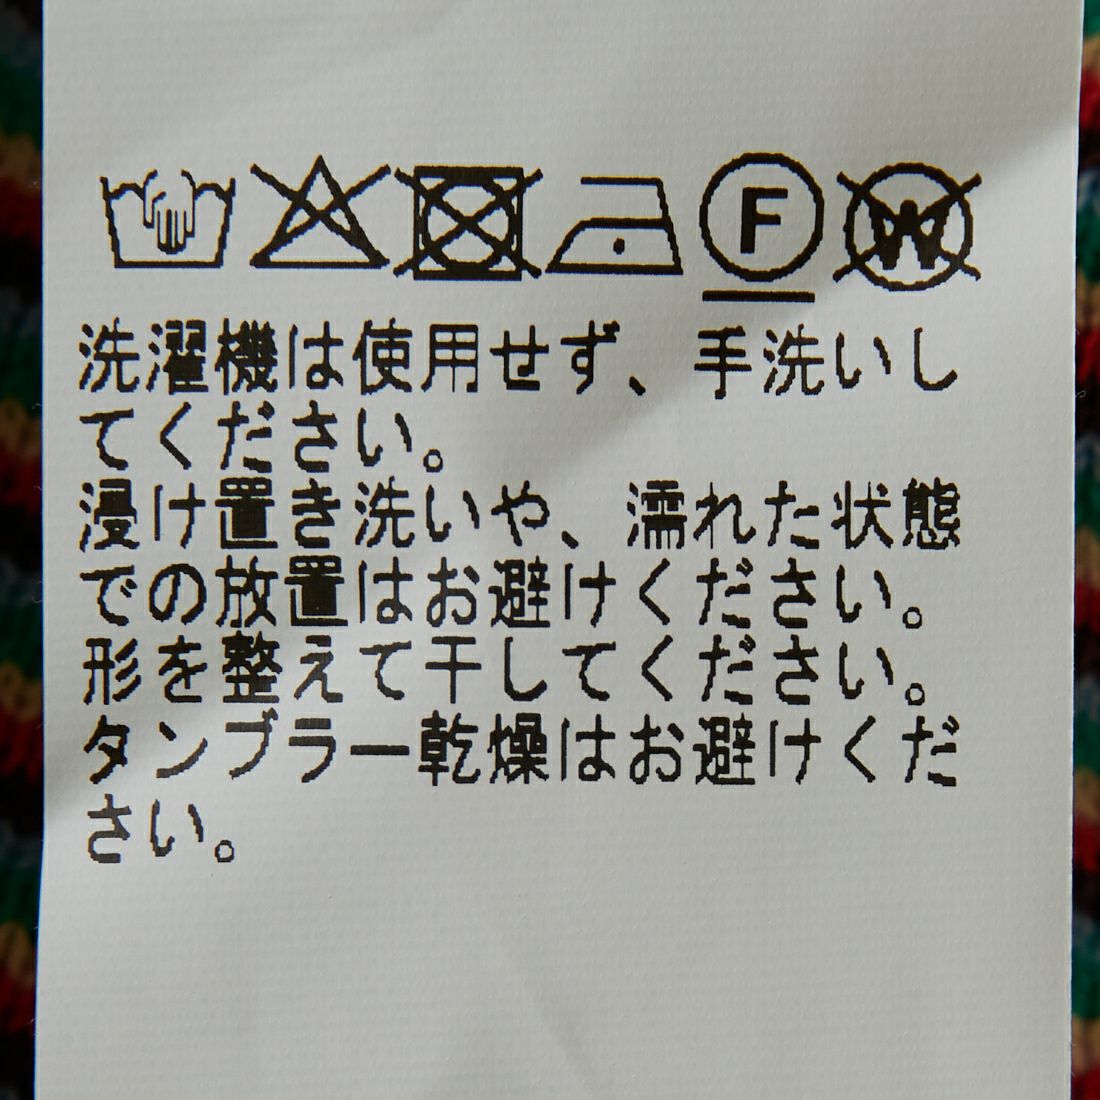 F W
洗濯機は使用せず、手洗いし
てください。
浸け置き洗いや、濡れた状態
での放置はお避けください。
形を整えて干してください。
タンブラー乾燥はお避けくだ
さい。